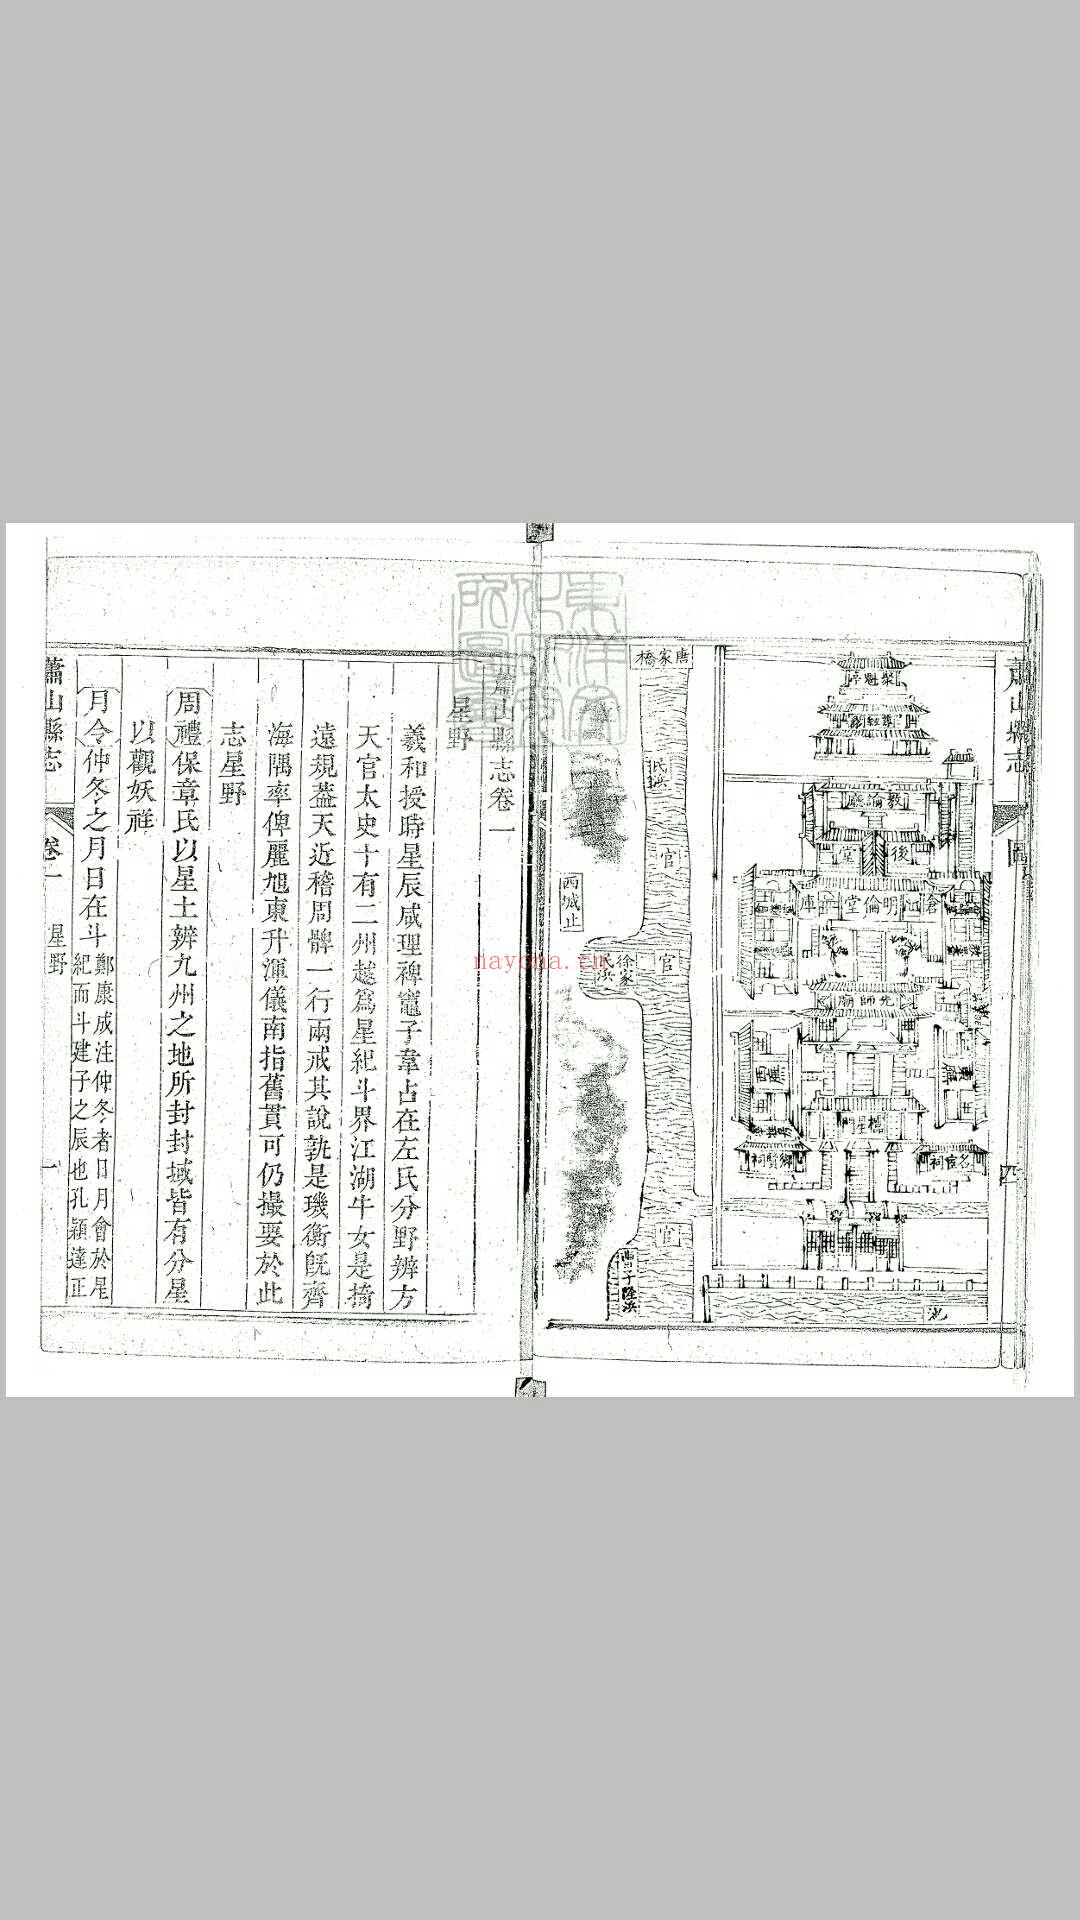 蕭山縣志
圖
四
聚魁亭
尊經閣
教諭廨
後堂
倉
明倫堂
庫
先師廟
西廡
東廡
櫺星門
鄉賢祠
名宦祠
池
唐家橋
民浜
官
官
官
徐家民浜
西城止
蕭山縣志卷一
星野
羲和授時星辰咸理裨竈子韋占在左氏分野辨方
天官太史十有二州越爲星紀斗界江湖牛女是掎
遠規葢天近稽周髀一行兩戒其說孰是璣衡旣齊
海隅率俾麗旭東升渾儀南指舊貫可仍撮要於此
志星野
周禮保章氏以星土辨九州之地所封封域皆有分星
以觀妖祥
月令仲冬之月日在斗
鄭康成注仲冬者日月會於星
紀而斗建子之辰也孔穎達正
蕭山縣志
卷一
星野
一
nayona.cn